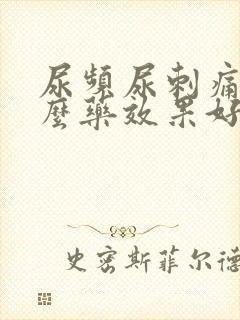 尿頻尿刺痛
麼藥效果好
史密斯菲尔德